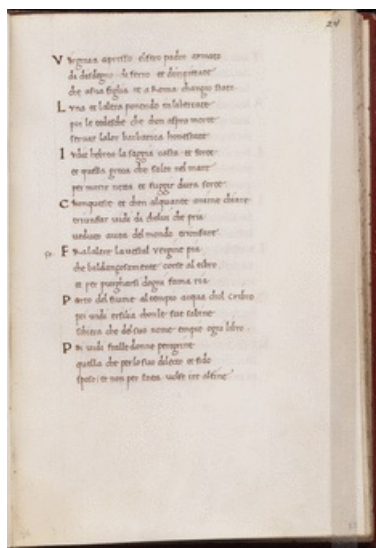 24
Virginia apresso elfero padre armato
di disdegno di ferro et di pietate
che a sua figlia et a Roma changio stato
Luna et laltra ponendo in libertate
poi le todesche che chon aspra morte
servar lalor barbarica honestate
Iudit hebrea la saggia casta et forte
et quella greca che salto nel mare
per morir netta et fuggir dura sorte
Chonqueste et chon alquante anime chiare
triunfar vidi di cholui che pria
veduto avea del mondo triunfare
Fralaltre la vestal vergine pia
che baldanzosamente corse al tibro
et per purgharsi dogna fama ria
Porto del fiume al tempio acqua chol cribro
poi vidi ersilia chonle sue sabine
schiera che del suo nome empie ogni libro
Poi vidi fralle donne peregrine
quella che per lo suo dilecto et fido
sposo et non per Enea volse ire alfine